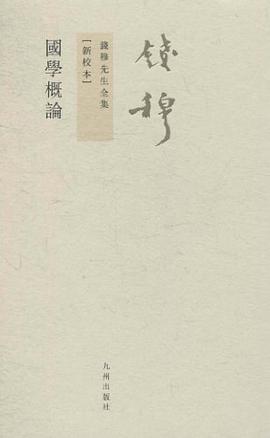 錢穆
錢穆先生全集
[新校本]
國學概論
九州出版社